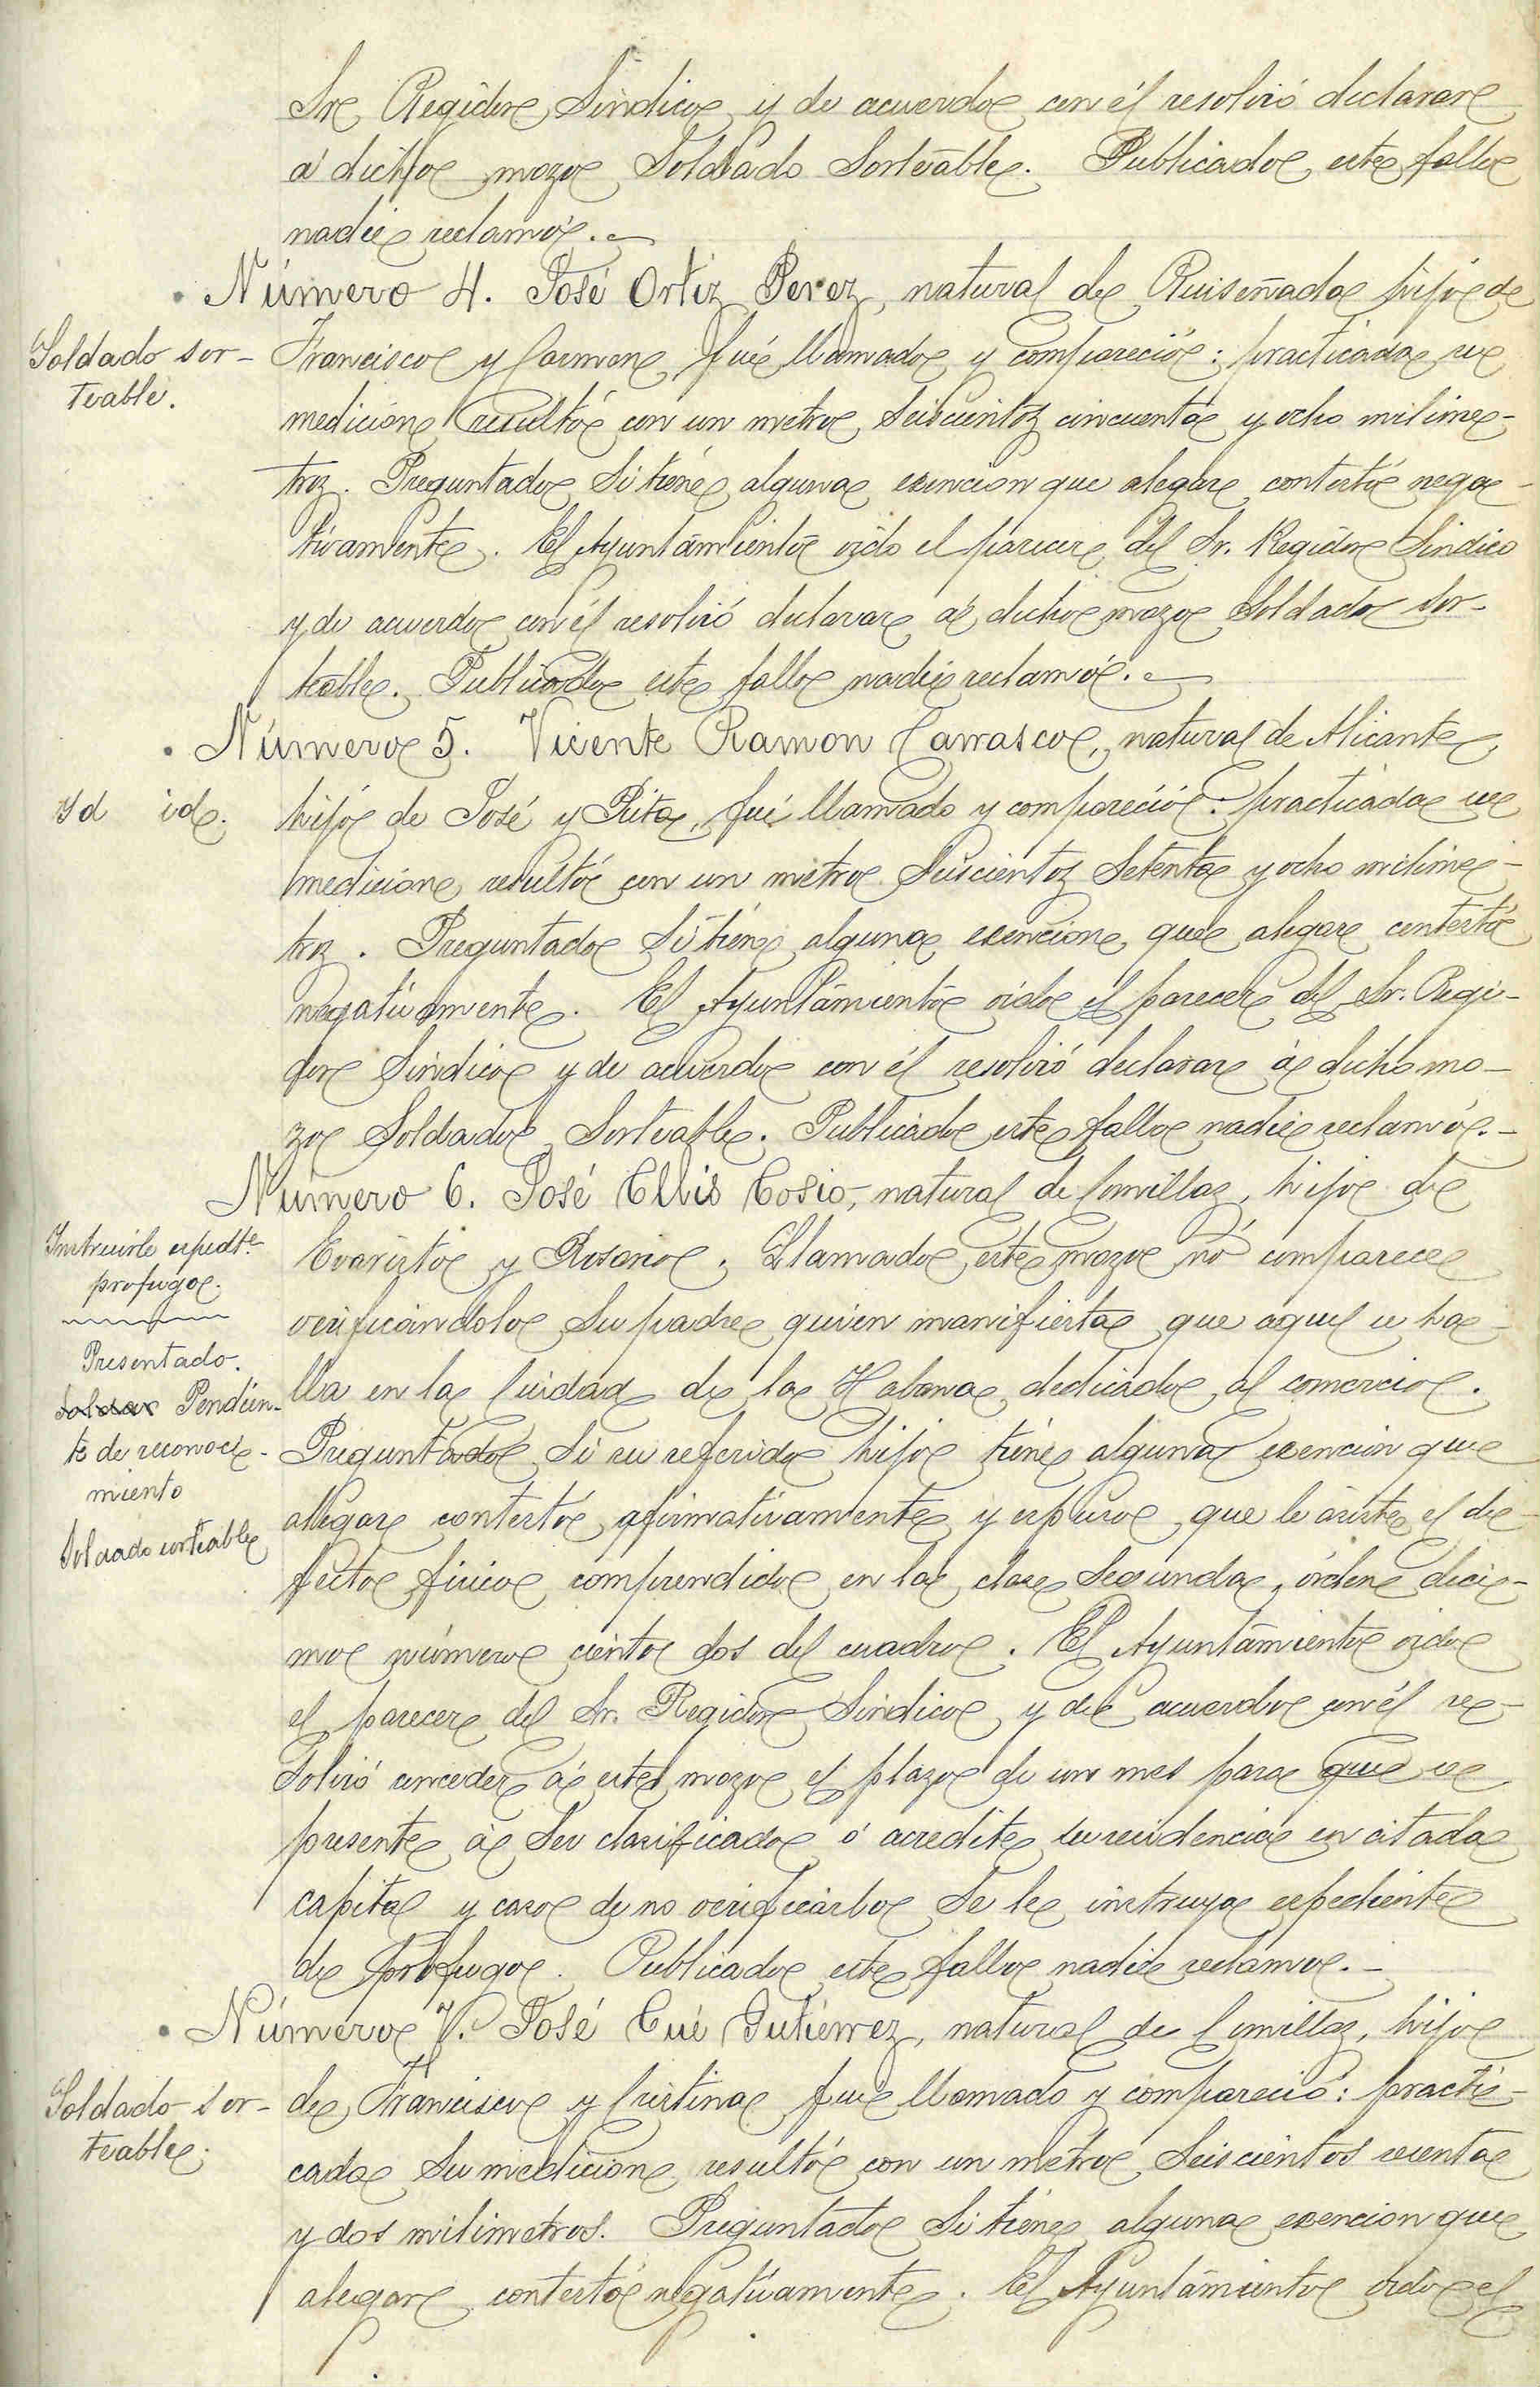 Sr Regidor Síndico y de acuerdo con él resolvió declarar
á dicho mozo Soldado Sorteable. Publicado este fallo
nadie reclamó.
Número 4. José Ortiz Perez, natural de Ruiseñada hijo de
Soldado sor-
teable.
Francisco y Carmen, fué llamado y compareció: practicada su
medicion resultó con un metro Seiscientos cincuenta y ocho milime-
tros. Preguntado Si tiene alguna esencion que alegar contestó nega-
tivamente. El Ayuntamiento oido el parecer del Sr. Regidor Sindico
y de acuerdo con él resolvió declarar á dicho mozo Soldado sor-
teable. Publicado este fallo nadie reclamó.
Número 5. Vicente Ramon Carrasco, natural de Alicante,
Yd id.
hijo de José y Rita, fué llamado y compareció: practicada su
medicion resultó con un metro Seiscientos Setenta y ocho milime-
tros. Preguntado Si tiene alguna esencion que alegar contestó
negativamente. El Ayuntamiento oido el parecer del Sr. Regi-
dor Sindico y de acuerdo con él resolvió declarar á dicho mo-
zo Soldado Sorteable. Publicado este fallo nadie reclamó.
Número 6. José Ellis Cosio, natural de Comillas, hijo de
Instruirle espedte
profugo.
Presentado.
Pendien-
te de reconoci-
miento
Soldado sorteable
Evaristo y Rosario. Llamado este mozo nó comparece
verificándolo Su padre quien manifiesta que aquel se ha-
lla en la Ciudad de la Habana dedicado al comercio.
Preguntado Si su referido hijo tiene alguna esencion que
alegar contestó afirmativamente y espuso que le asiste el de-
fecto fisico comprendido en la clase Segunda, órden deci-
mo número ciento dos del cuadro. El Ayuntamiento oido
el parecer del Sr. Regidor Sindico y de acuerdo con él re-
Solvió conceder á este mozo el plazo de un mes para que se
presente á Ser clasificado ó acredite su residencia en citada
capital y caso de no verificarlo Se le instruya espediente
de prófugo. Publicado este fallo nadie reclamó.
Número 7. José Cué Gutiérrez, natural de Comillas, hijo
Soldado sor-
teable.
de Francisco y Cristina fué llamado y compareció: practi-
cada Su medicion resultó con un metro Seiscientos sesenta
y dos milimetros. Preguntado Si tiene alguna esencion que
alegar contestó negativamente. El Ayuntamiento oido el